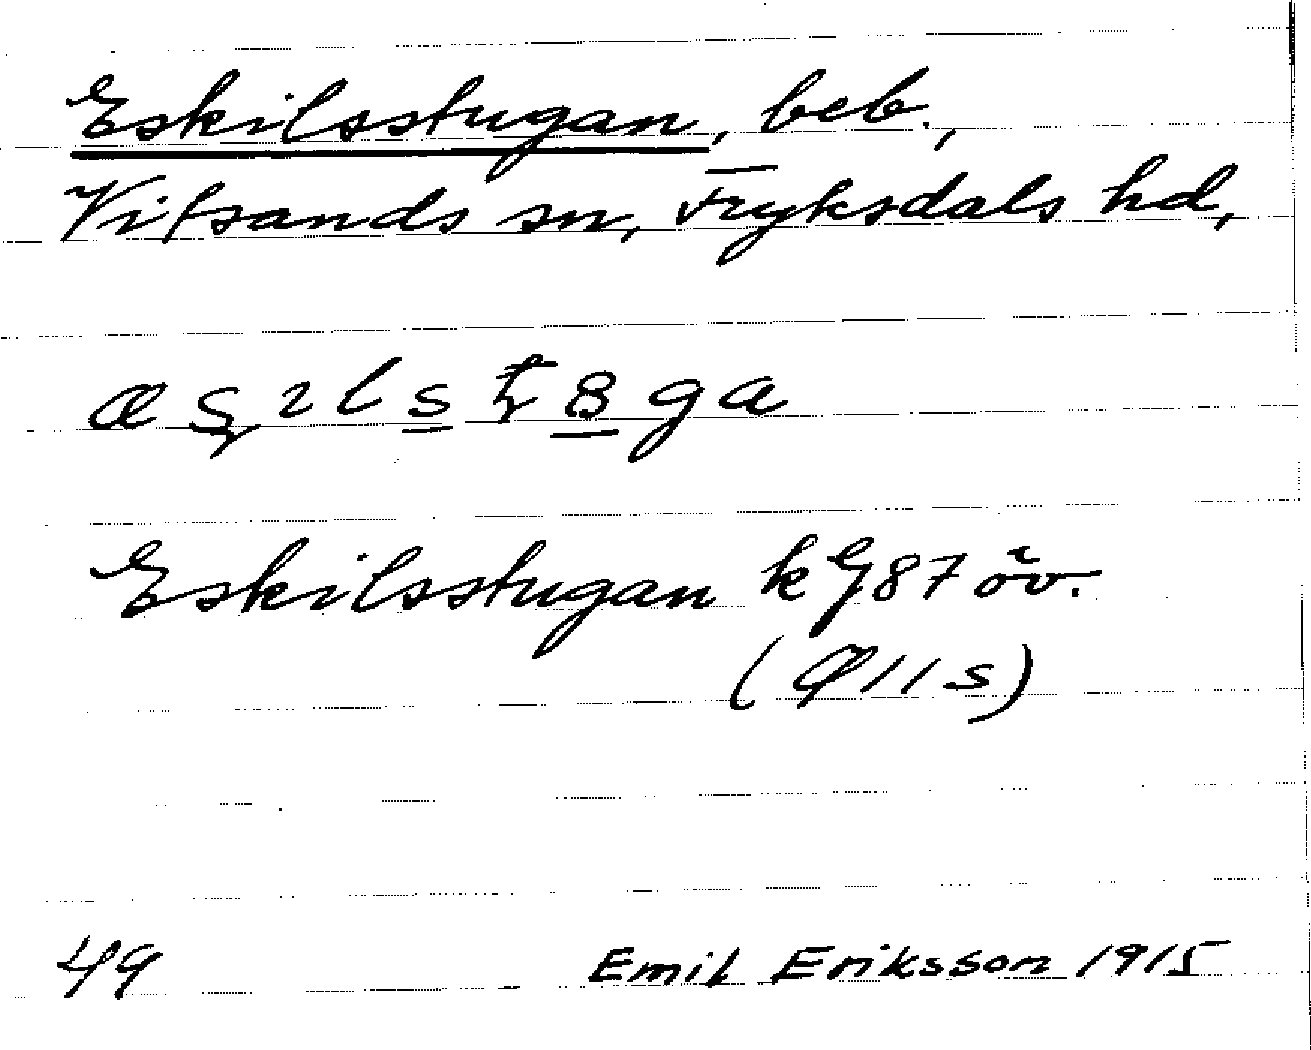 Eskilsstugan, beb.,
Vitsands sn, Fryksdals hd,
Eskilsstugan k G 87 öv.
49 Emil Eriksson 1915